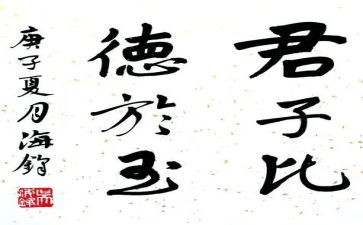 君子比
德於玉
庚子夏月海鈞